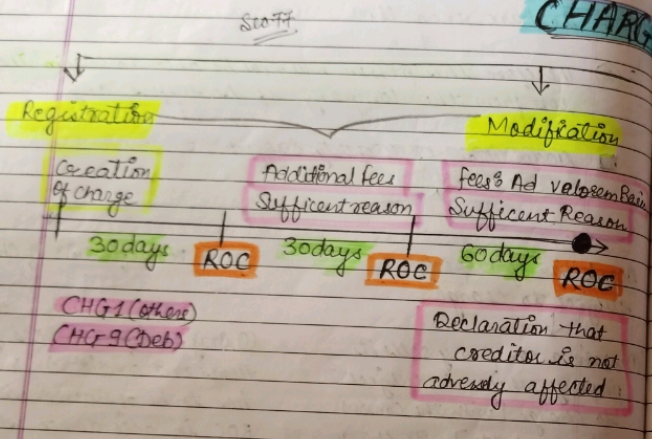 CHARG
Sec 77
Registration
Modification
Creation
of charge
Additional fees
Sufficent reason
fees Ad valorem Basis
Sufficent Reason
30 days
ROC
30 days
ROC
60 days
ROC
CHG 1 (others)
CHG-9 (Deb)
Declaration that
creditor is not
adversly affected